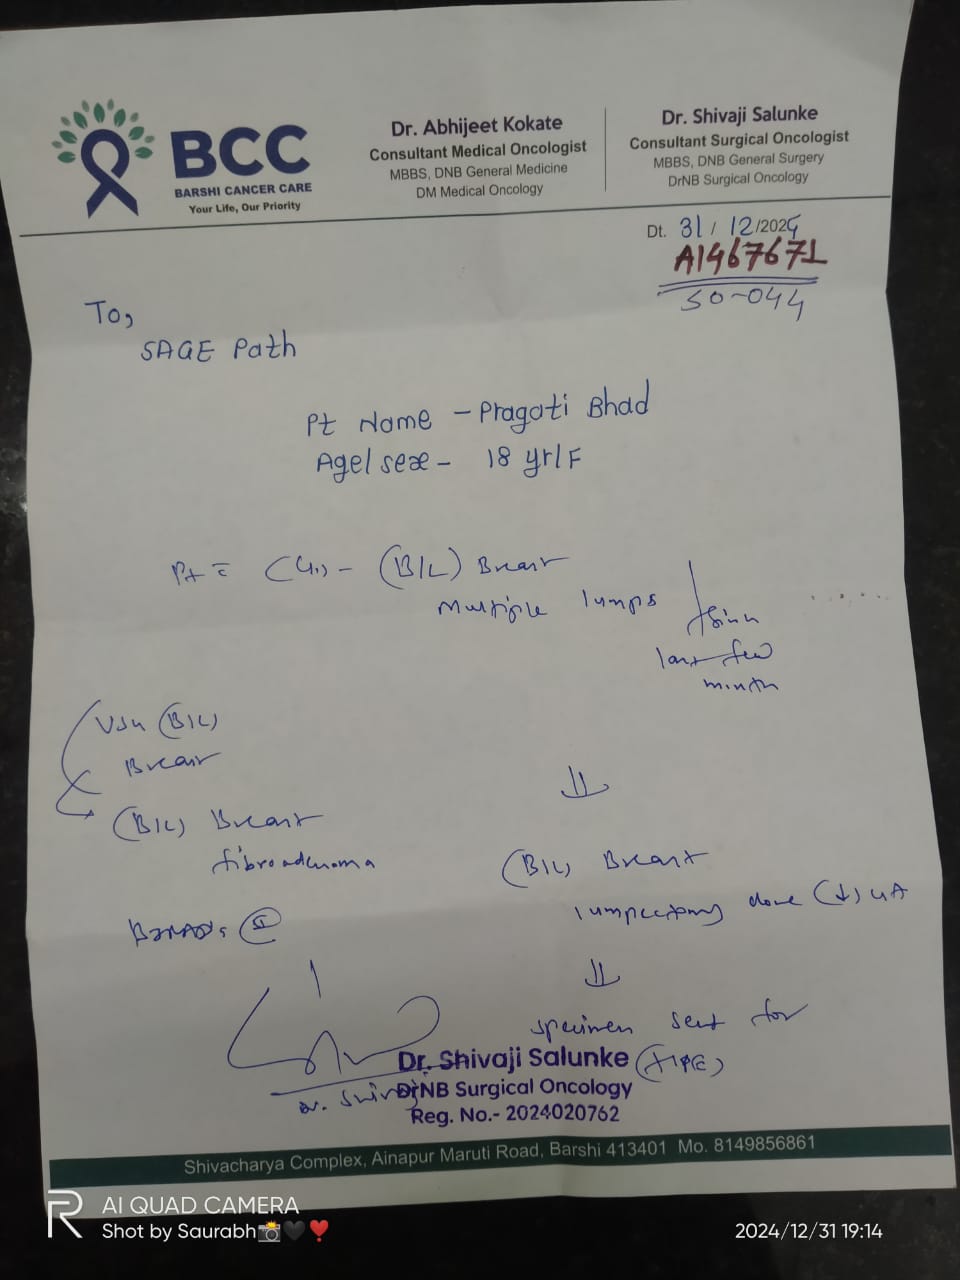 BCC
BARSHI CANCER CARE
Your Life, Our Priority
Dr. Abhijeet Kokate
Consultant Medical Oncologist
MBBS, DNB General Medicine
DM Medical Oncology
Dr. Shivaji Salunke
Consultant Surgical Oncologist
MBBS, DNB General Surgery
DrNB Surgical Oncology
Dt. 31/12/2024
A1467671
SO-044
To,
SAGE Path
Pt Name - Pragati Bhad
Age/sex - 18 yr/F
(B/L) Breast
Multiple lumps
last few
month
(B/L)
Breast
(B/L) Breast
fibroadenoma
(B/L) Breast
lumpectomy done (↓) GA
specimen sent for
(HPE)
Dr. Shivaji Salunke
DrNB Surgical Oncology
Reg. No.- 2024020762
Shivacharya Complex, Ainapur Maruti Road, Barshi 413401 Mo. 8149856861
AI QUAD CAMERA
Shot by Saurabh📸🖤❣️
2024/12/31 19:14